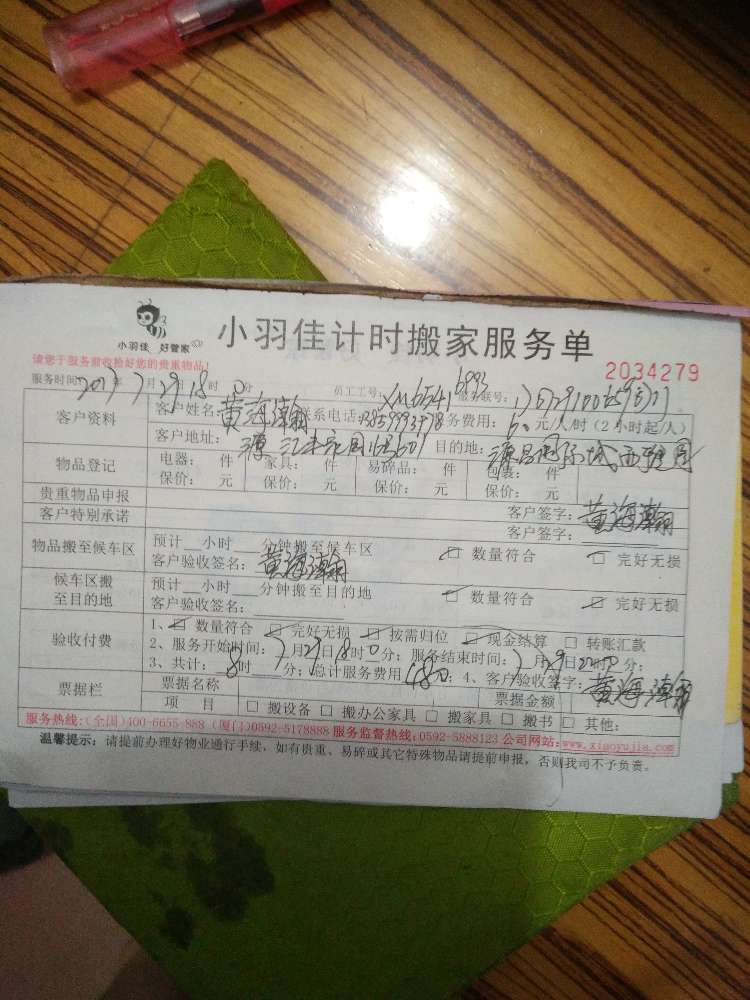 小羽佳 好管家
小羽佳计时搬家服务单
请您于服务前收捡好您的贵重物品!
2034279
服务时间: 年7月29日18时0分 员工工号: XM6541 6993 服务联号:
客户资料 客户姓名 黄海瀚 联系电话: 服务费用: 60元/人/时(2小时起/人)
客户地址: 目的地: 源昌国际城西班园
物品登记 电器: 件 家具: 件 易碎品: 件 包裹: 件
保价: 元 保价: 元 保价: 元 保价: 元
贵重物品申报 客户签字: 黄海瀚
客户特别承诺 客户签字:
物品搬至候车区 预计__小时___分钟搬至候车区 数量符合 完好无损
客户验收签名: 黄海瀚
候车区搬至目的地 预计__小时___分钟搬至目的地 数量符合 完好无损
客户验收签名:
验收付费 1、 数量符合 完好无损 按需归位 现金结算 转账汇款
2、服务开始时间: 7月29日18时0分; 服务结束时间: 7月29日22时0分;
3、共计: 8时 分; 总计服务费用 480元; 4、客户验收签字: 黄海瀚
票据栏 票据名称 票据金额
项 目 搬设备 搬办公家具 搬家具 搬书 其他:
服务热线:(全国)400-6655-888 (厦门)0592-5178888 服务监督热线:0592-5888123 公司网站:www.xiaoyujia.com
温馨提示: 请提前办理好物业通行手续、如有贵重、易碎或其它特殊物品请提前申报,否则我司不予负责。